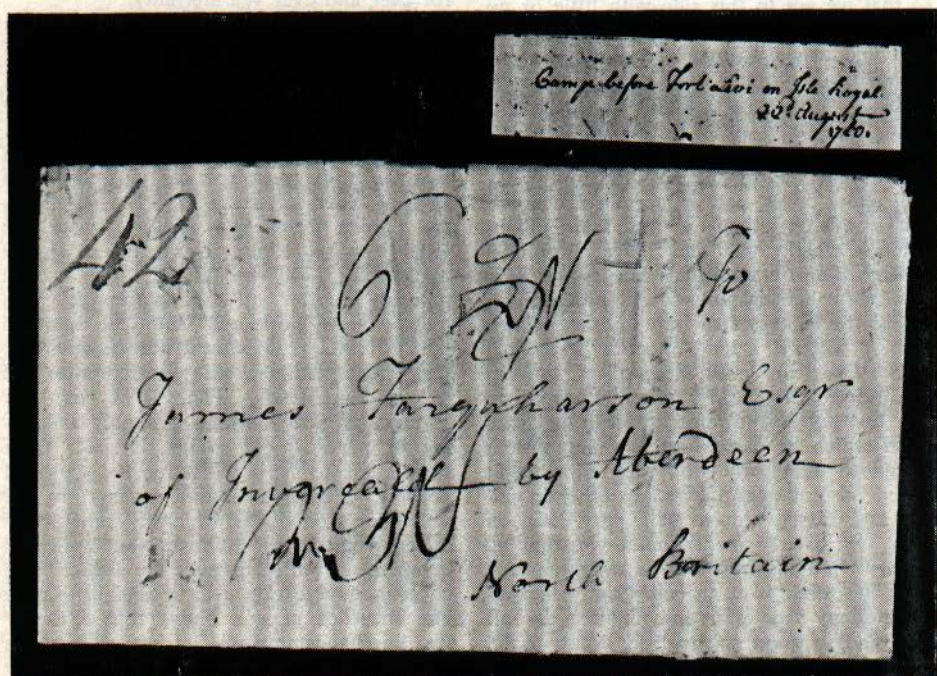 Camp before Fort Levi on Isle Royal
22d. August
1760.
42
6
To
James Farquharson Esqr
of Invercald by Aberdeen
North Britain